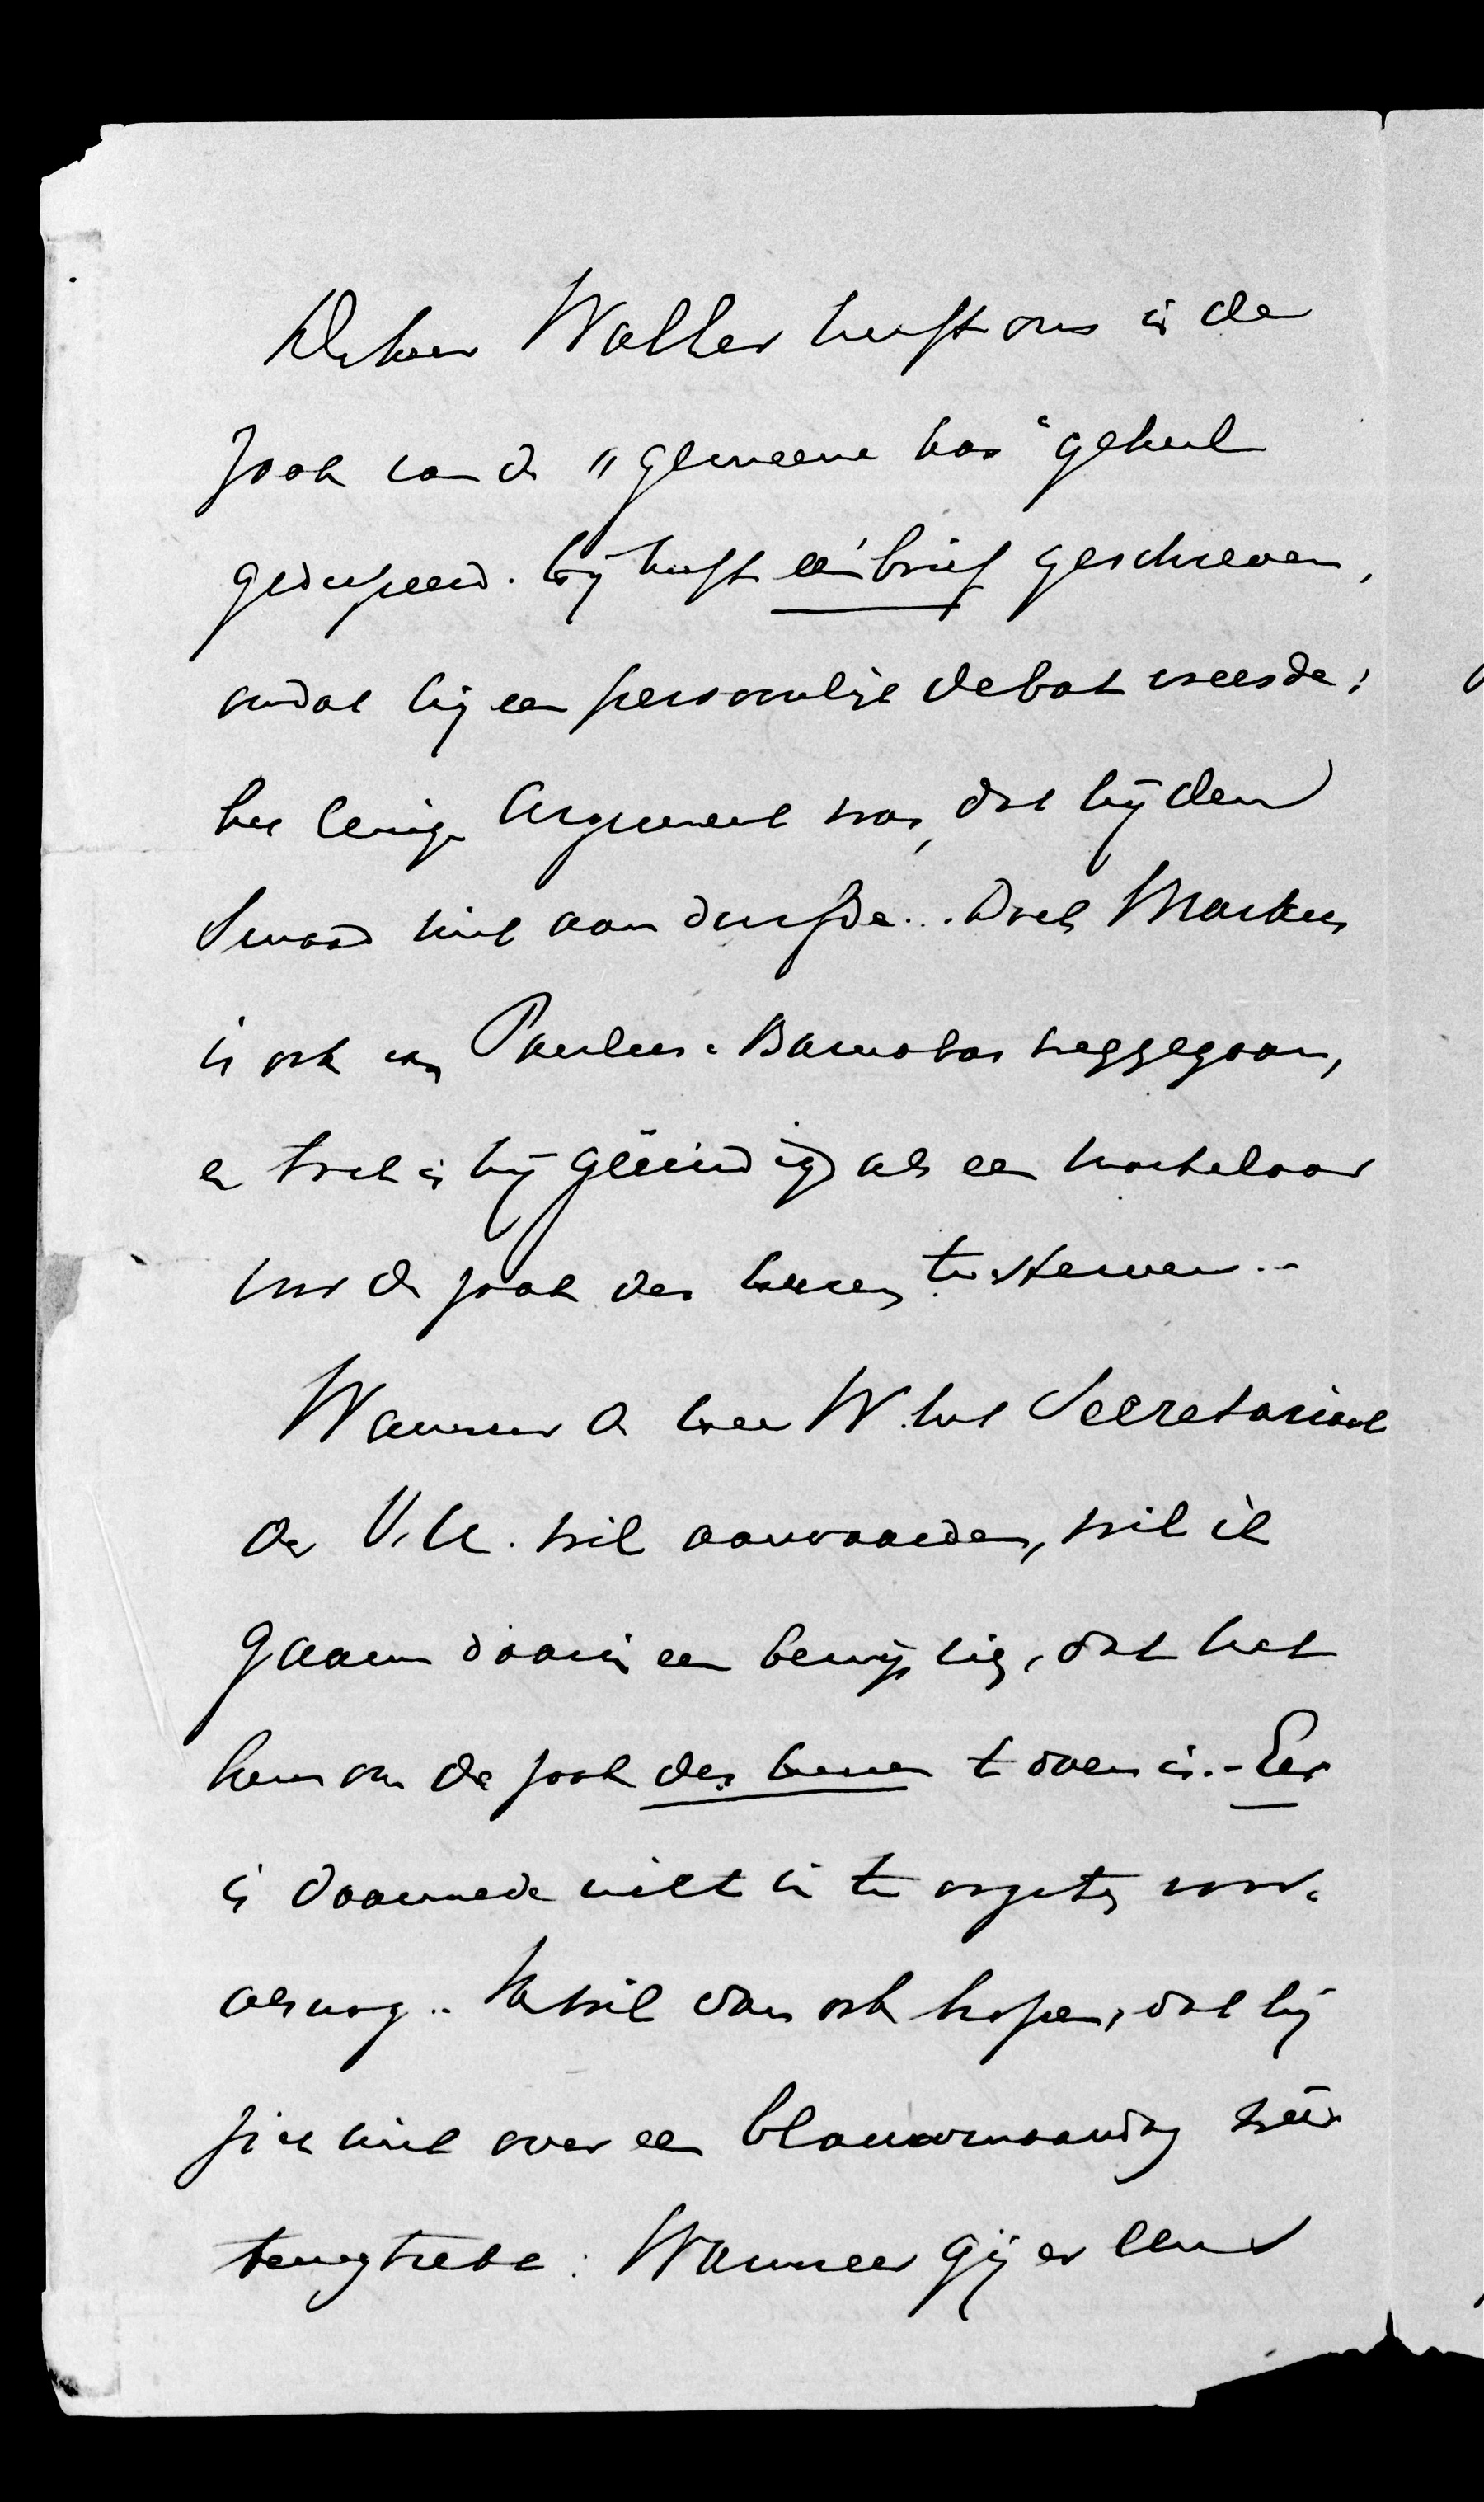 De heer Walter heeft ons in de
zaak van de „gemeene kas" geheel
gedupeerd. Hij heeft één brief geschreven,
omdat hij een persoonlijk debat vreesde;
het eenige argument was, dat hij den
Smaad niet aandurfde... Doch Markus
is ook van Paulus & Barnabas weggegaan,
en toch is hij geëindigd als een martelaar
voor de zaak des Heeren te sterven..
Wanneer de heer W. het Secretariaat
der V.U. wil aanvaarden, wil ik
gaarne daarin een bewijs zien, dat het
hem om de zaak des Heeren te doen is.. Eer
is daarmede niet in te oogsten voor-
alsnog.. Ik wil dan ook hopen, dat hij
zich niet over een blauwmaandag wéér
terugtrekke: Wanneer gij er eens